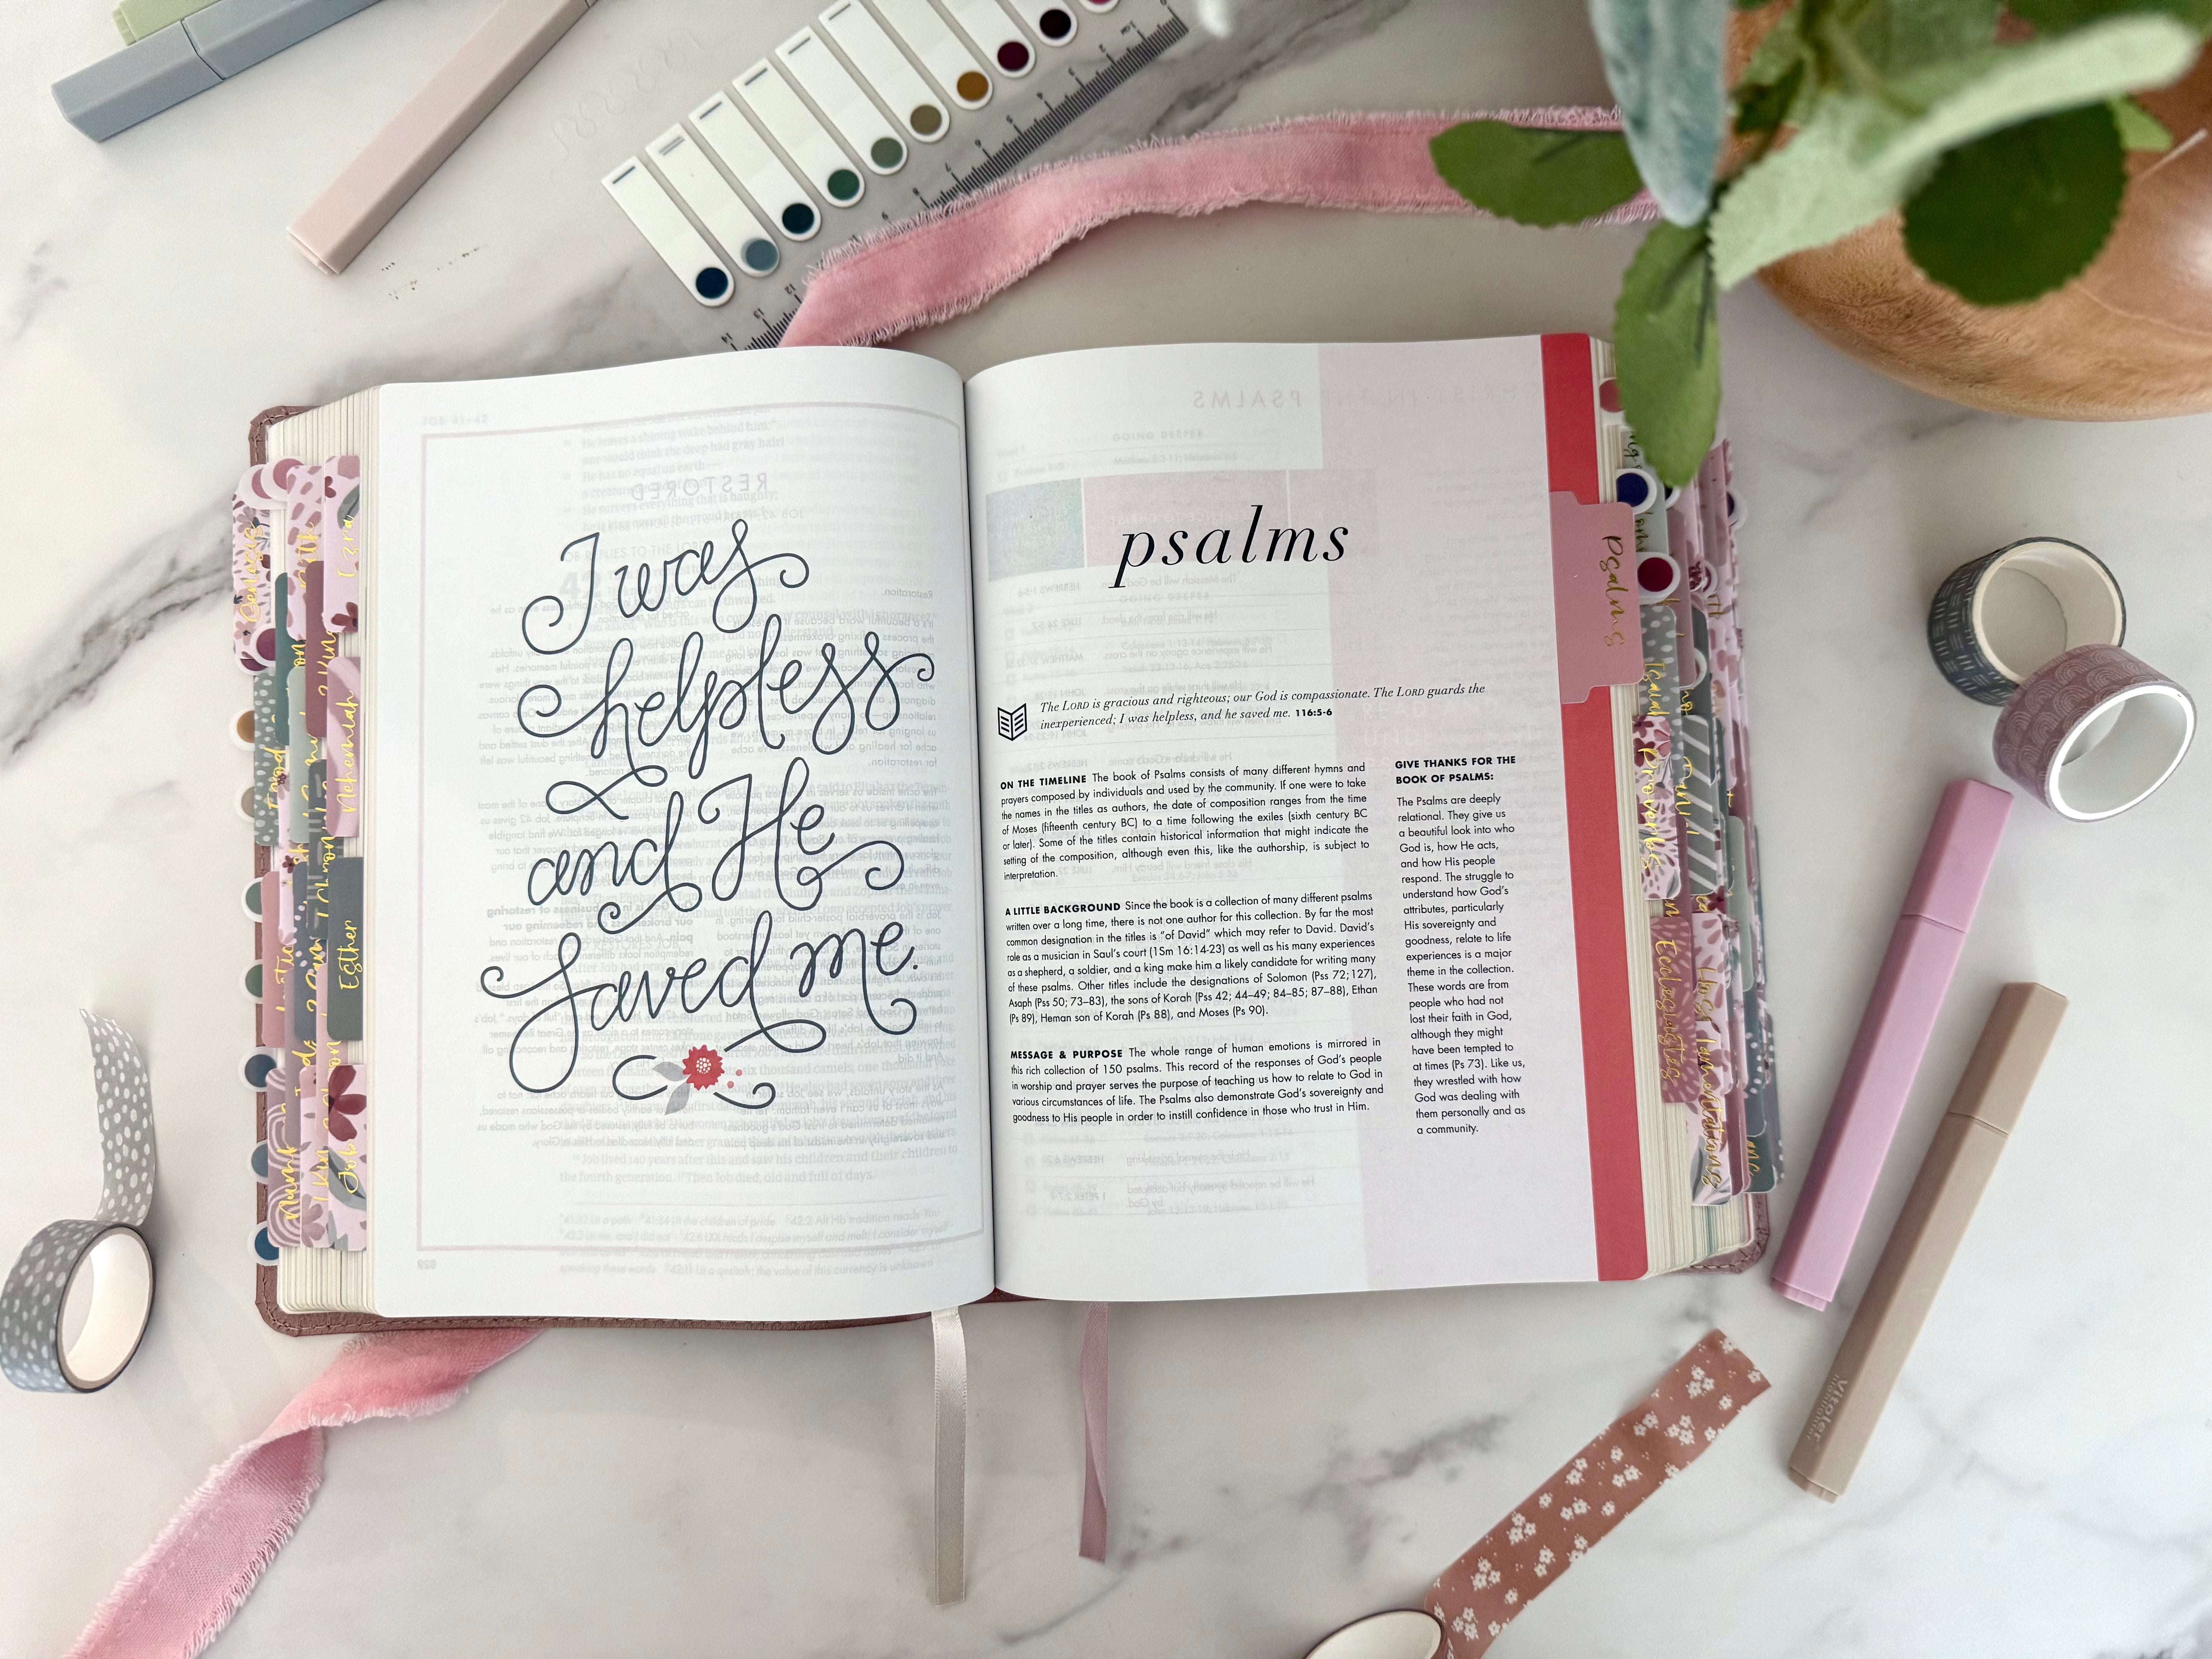 I was
helpless
and He
saved me.
psalms
The LORD is gracious and righteous; our God is compassionate. The LORD guards the
inexperienced; I was helpless, and he saved me. 116:5-6
ON THE TIMELINE The book of Psalms consists of many different hymns and
prayers composed by individuals and used by the community. If one were to take
the names in the titles as authors, the date of composition ranges from the time
of Moses (fifteenth century BC) to a time following the exiles (sixth century BC
or later). Some of the titles contain historical information that might indicate the
setting of the composition, although even this, like the authorship, is subject to
interpretation.
A LITTLE BACKGROUND Since the book is a collection of many different psalms
written over a long time, there is not one author for this collection. By far the most
common designation in the titles is "of David" which may refer to David. David's
role as a musician in Saul's court (1Sm 16:14-23) as well as his many experiences
as a shepherd, a soldier, and a king make him a likely candidate for writing many
of these psalms. Other titles include the designations of Solomon (Pss 72; 127),
Asaph (Pss 50; 73–83), the sons of Korah (Pss 42; 44–49; 84–85; 87–88), Ethan
(Ps 89), Heman son of Korah (Ps 88), and Moses (Ps 90).
MESSAGE & PURPOSE The whole range of human emotions is mirrored in
this rich collection of 150 psalms. This record of the responses of God's people
in worship and prayer serves the purpose of teaching us how to relate to God in
various circumstances of life. The Psalms also demonstrate God's sovereignty and
goodness to His people in order to instill confidence in those who trust in Him.
GIVE THANKS FOR THE
BOOK OF PSALMS:
The Psalms are deeply
relational. They give us
a beautiful look into who
God is, how He acts,
and how His people
respond. The struggle to
understand how God's
attributes, particularly
His sovereignty and
goodness, relate to life
experiences is a major
theme in the collection.
These words are from
people who had not
lost their faith in God,
although they might
have been tempted to
at times (Ps 73). Like us,
they wrestled with how
God was dealing with
them personally and as
a community.
Genesis
Ezra
Nehemiah
Esther
Job
Psalms
Proverbs
Ecclesiastes
Isaiah
Lamentations
Daniel
Hosea
Vitoler